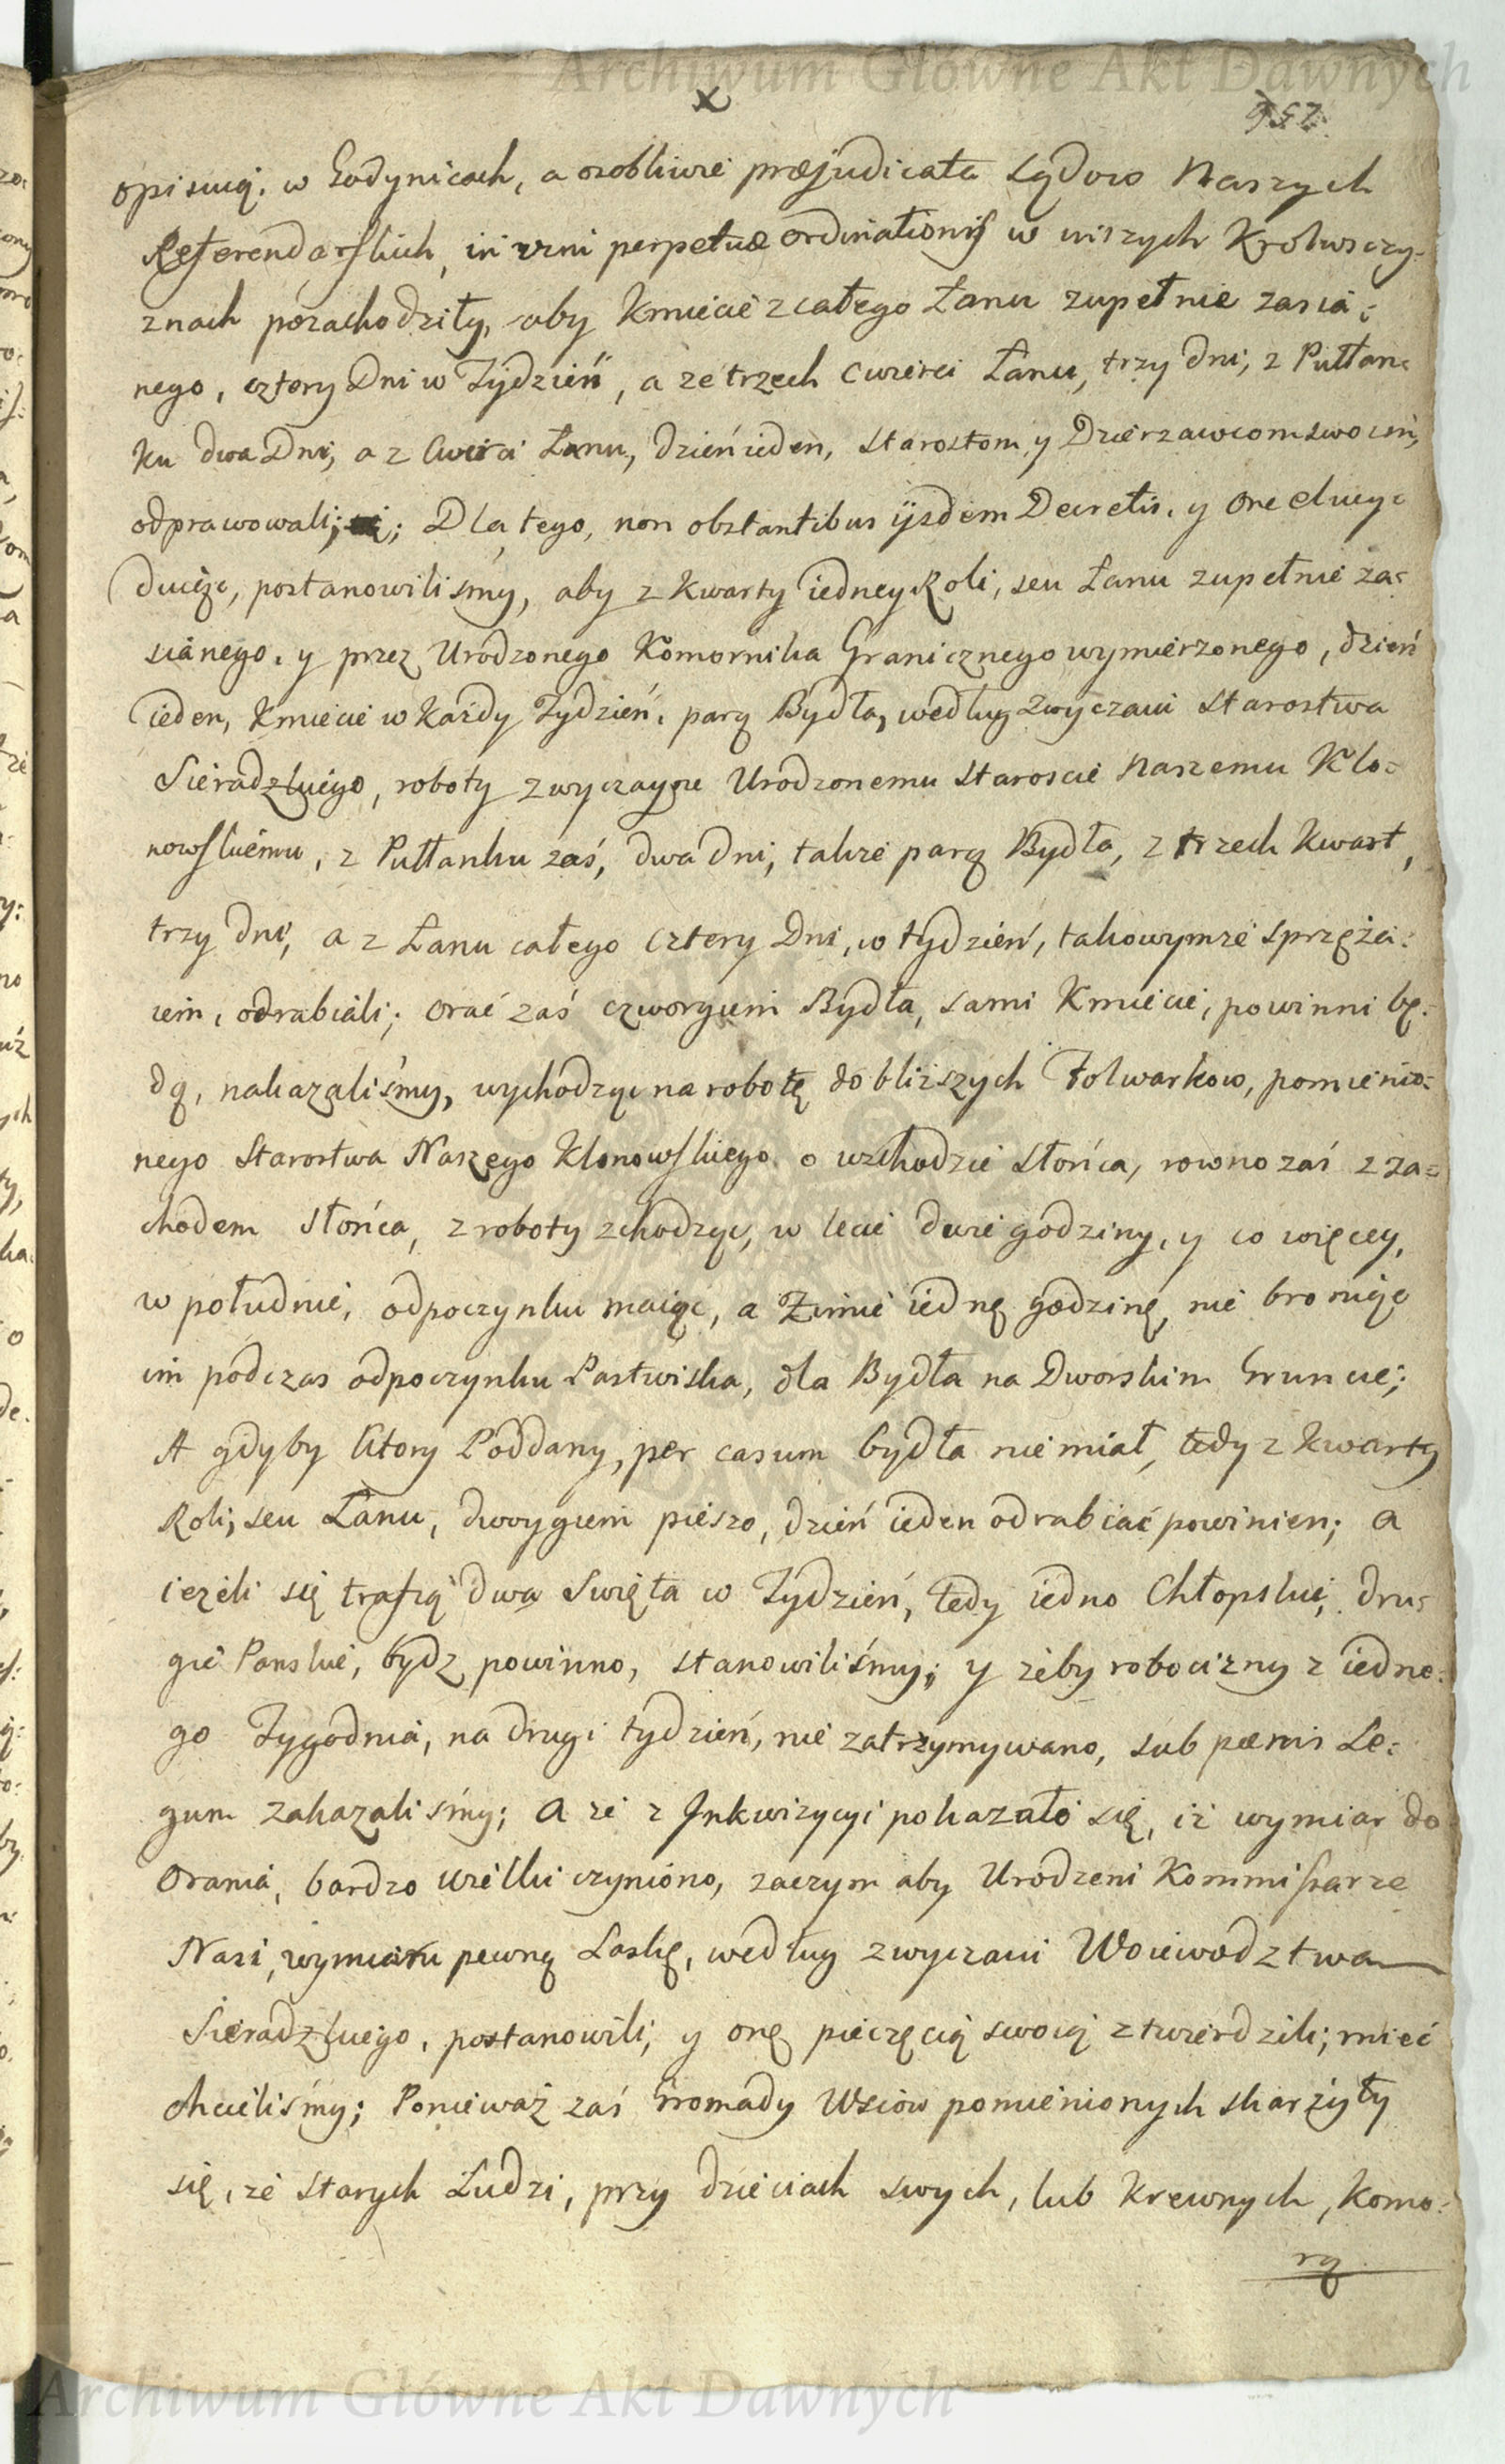 Archiwum Główne Akt Dawnych
x
opisuią. w Godynicach, a osobliwie præjudicata Sądow Naszych
Referendarskich, in vim perpetuæ ordinationis w inszych Krolwsczy-
znach pozachodziły, aby Kmiecie z całego Łanu zupełnie zasia:
nego, cztery Dni w Tydzień, a ze trzech Cwierci Łanu, trzy dni, z Pułłan:
ku dwa Dni, a z Cwierci Łanu, dzień ieden, Starostom y Dzierzawcom swoim,
odprawowali; Dla tego, non obstantibus ijsdem Decretis, y one eluci:
duiąc, postanowilismy, aby z Kwarty iedney Roli, seu Łanu zupełnie za:
sianego, y przez Urodzonego Komornika Granicznego wymierzonego, dzień
ieden, Kmiecie w Każdy Tydzień, parą Bydła, według zwyczaiu Starostwa
Sieradzkiego, roboty zwyczayne Urodzonemu Staroscie Naszemu Klo:
nowskiemu, z Pułłanku zaś, dwa dni, takze parą Bydła, z trzech Kwart,
trzy dni, a z Łanu całego cztery Dni, w tydzień, takowymze sprzęzai:
iem, odrabiali; orać zaś czworgiem Bydła, sami Kmiecie, powinni bę:
dą, nakazaliśmy, wychodząc na robotę do bliszych Folwarkow, pomienio:
nego Starostwa Naszego Klonowskiego o wschodzie Słońca, rowno zaś z za:
chodem Słońca, z roboty zchodząc, w lecie dwie godziny, y co więcey,
w południe, odpoczynku maiąc, a Zimie iednę godzinę, nie broniąc
im podczas odpoczynku Pastwiska, dla Bydła na Dworskim Gruncie;
A gdyby ktory Poddany, per casum bydła nie miał, tedy z Kwarty
Roli, seu Łanu, dwoygiem pieszo, dzień ieden odrabiać powinien; a
iezeli się trafią dwa Swięta w Tydzień, tedy iedno Chłopskie, dru:
gie Panskie, bydz powinno, stanowiliśmy; y zeby robocizny z iedne:
go Tygodnia, na drugi tydzień, nie zatrzymywano, sub pœnis Le:
gum zakazaliśmy; a ze z Inkwizycyi pokazało się, iz wymiar do
Orania, bardzo wielki czyniono, zaczym aby Urodzeni Kommissarze
Nasi, wymiaru pewną Laskę, według zwyczaiu Woiewodztwa
Sieradzkiego, postanowili, y onę pieczęcią swoią ztwierdzili; mieć
chcieliśmy; Poniewaz zaś Gromady Wsiow pomienionych skarzyły
się, ze starych Ludzi, przy dzieciach swych, lub Krewnych, Komo:
rą
Archiwum Główne Akt Dawnych